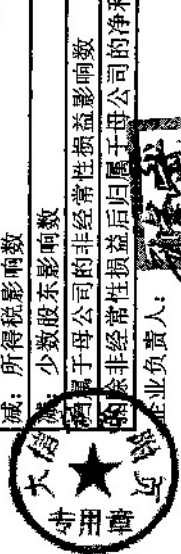 减：所得税影响数
少数股东影响数
属于母公司的非经常性损益影响数
除非经常性损益后归属于母公司的净利
企业负责人：
大信
专用章